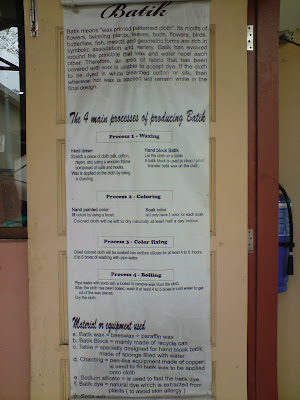 Batik
Batik means "wax printed patterned cloth". Its motifs of
flowers, twinning plants, leaves, buds, flowers, birds,
butterflies, fish, insects and geometric forms are rich in
symbolic association and variety. Batik has evolved
around the principle that wax and water repel each
other. Therefore, an area of fabric that has been
covered with wax is unable to accept dyes. If the cloth
to be dyed is white bleached cotton or silk, then
wherever hot wax is applied will remain white in the
final design.
The 4 main processes of producing Batik
Process 1 - Waxing
Hand drawn
Stretch a piece of cloth (silk, cotton,
rayon, etc) using a wooden frame
composed of nails and hooks
Wax is applied on the cloth by using
a chanting.
Hand block Batik
Lay the cloth on a table.
A batik block is used to stamp and
transfer batik wax on the cloth.
Process 2 - Coloring
Hand painted color
fill colors by using a brush.
Soak color
will only have 1 color for each soak.
Colored cloth will be left to dry naturally at least half a day indoor.
Process 3 - Color fixing
Dried colored cloth will be soaked into sodium silicate for at least 4 to 8 hours.
2 to 3 times of washing with pipe water.
Process 4 - Boiling
Pipe water with soda ash is boiled to remove wax from the cloth.
After the cloth has been boiled, wash it at least 4 to 5 times in cold water to get
rid of the wax pieces.
Dry the cloth.
Material or equipment used
a. Batik wax = beeswax + paraffin wax
b. Batik Block = mainly made of recycle can
c. Table = specially designed for hand block batik,
made of sponge filled with water
d. Chanting = pen-like equipment made of copper,
is used to fill batik wax to be applied
onto cloth
e. Sodium silicate = is used to fast the batik dye
f. Batik dye = natural dye which is extracted from
plants ( to avoid skin allergy )